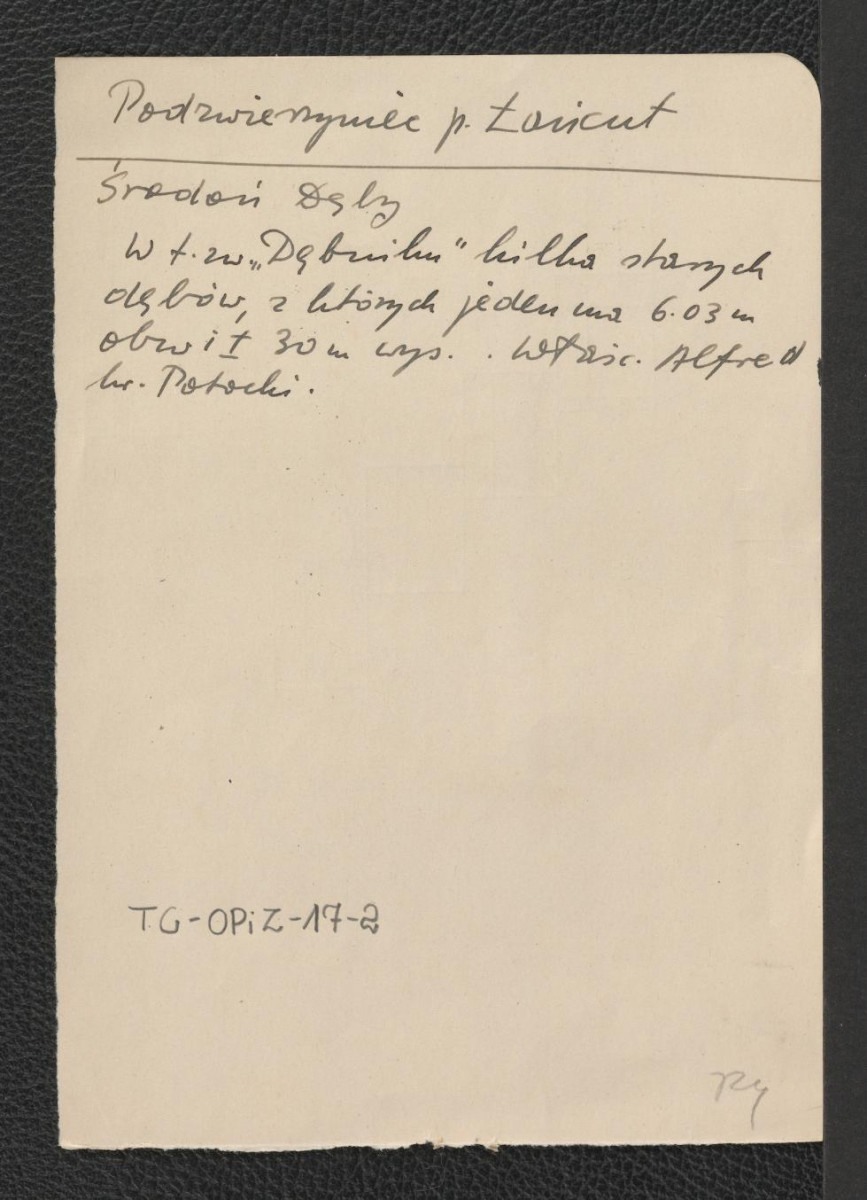 Podzwierzyniec p. Łańcut
Środoń Dęby
W t. zw „Dębniku" kilka starych
dębów, z których jeden ma 6.03 m
obw i ± 30 m wys. . Właśc. Alfred
hr. Potocki.
TG-OPiZ-17-2